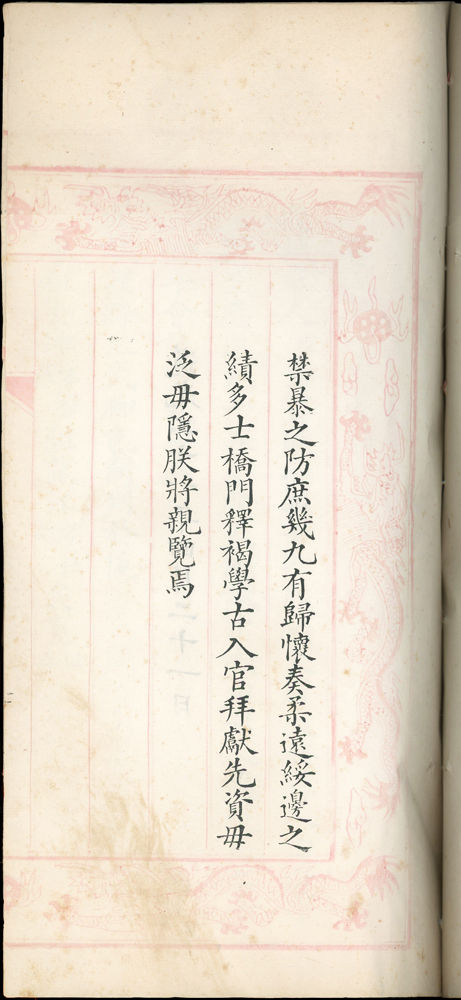 禁暴之防庶幾九有歸懷奏柔遠綏邊之
績多士橋門釋褐學古入官拜獻先資毋
泛毋隱朕將親覽焉